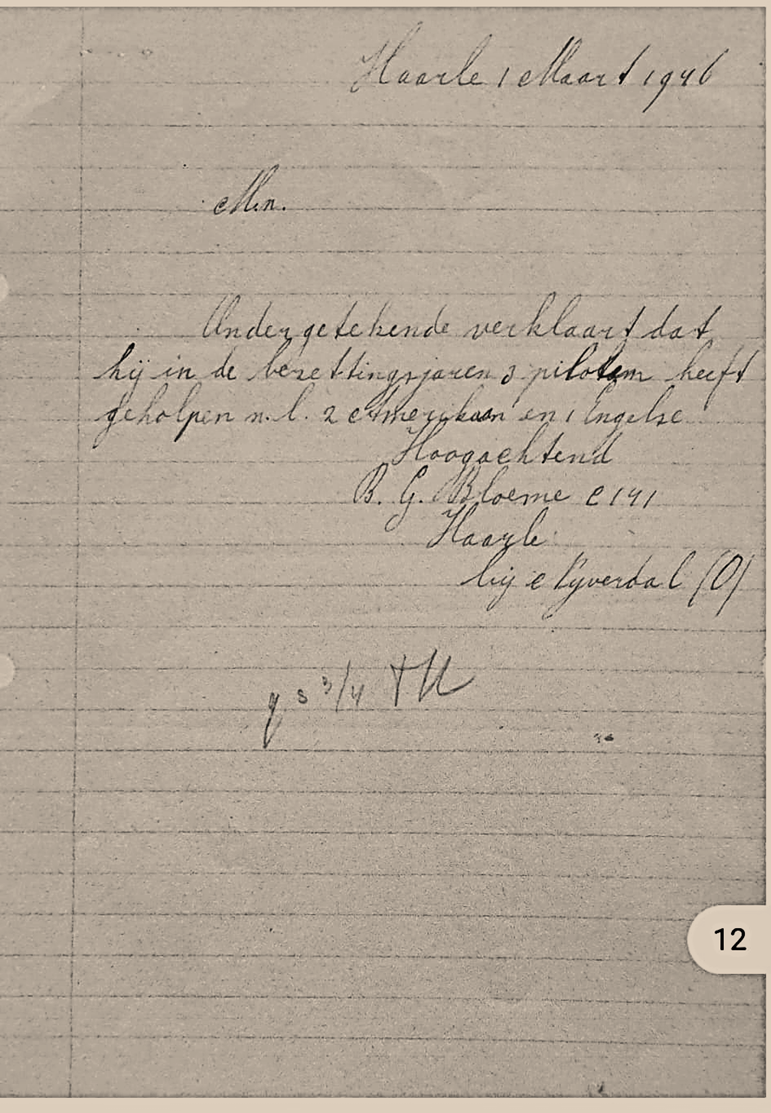 Haarle 1 Maart 1946
Mn.
Ondergetekende verklaart dat
hij in de bezettingsjaren 3 piloten heeft
geholpen n.l. 2 Amerikaan en 1 Engelse
Hoogachtend
B. G. Bloeme C 141
Haarle
bij Nijverdal (O)
3/4
12